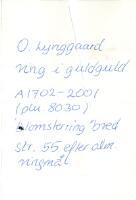 O. Lynggaard
ring i guldguld
A1702-2001
(plu 8030)
"blomsterring" bred
str. 55 efter alm.
ringmål